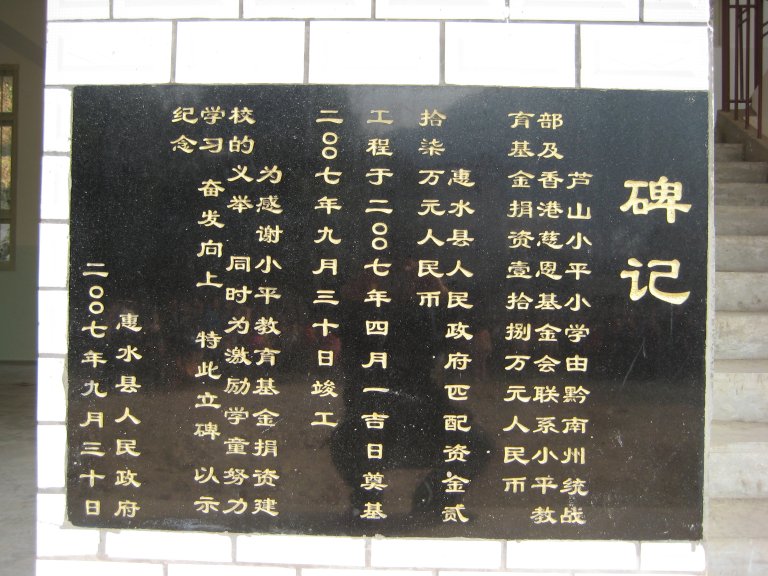 碑记
芦山小平小学由黔南州统战
部及香港慈恩基金会联系小平教
育基金捐资壹拾捌万元人民币
惠水县人民政府匹配资金贰
拾柒万元人民币
工程于二00七年四月一吉日奠基
二00七年九月三十日竣工
为感谢小平教育基金捐资建
校的义举 同时为激励学童努力
学习 奋发向上 特此立碑 以示
纪念
惠水县人民政府
二00七年九月三十日